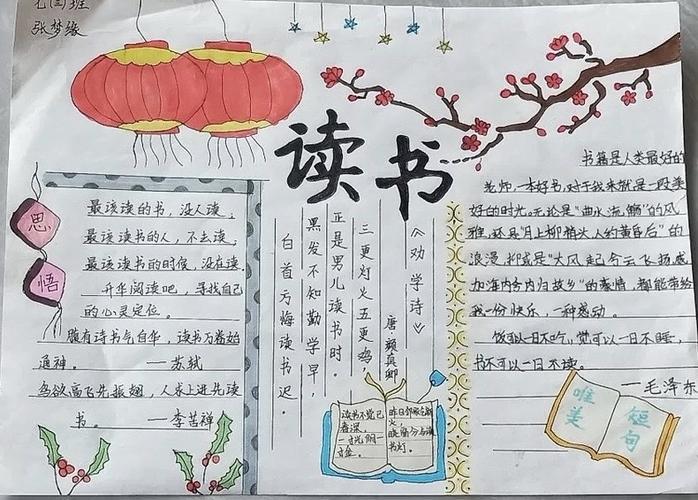 张梦缘
读书
思
悟
最该读的书，没人读；
最该读书的人，不去读；
最该读书的时候，没在读。
升华阅读吧，寻找自己
的心灵定位。
腹有诗书气自华，读书万卷始
通神。 ——苏轼
鸟欲高飞先振翅，人求上进先读
书。 ——李苦禅
《劝学诗》
唐 颜真卿
三更灯火五更鸡，
正是男儿读书时。
黑发不知勤学早，
白首方悔读书迟。
读书不觉已
春深，
一寸光阴一
寸金。
昨日邻家乞新
火，
晓窗分与读
书灯。
书籍是人类最好的
老师，一本好书，对于我来就是一段美
好的时光。无论是“曲水流觞”的风
雅，还是“月上柳梢头，人约黄昏后”的
浪漫，抑或是“大风起兮云飞扬，威
加海内兮归故乡”的豪情，都能带给
我一份快乐，一种感动。
饭可以一日不吃，觉可以一日不睡，
书不可以一日不读。
——毛泽东
唯美
短句